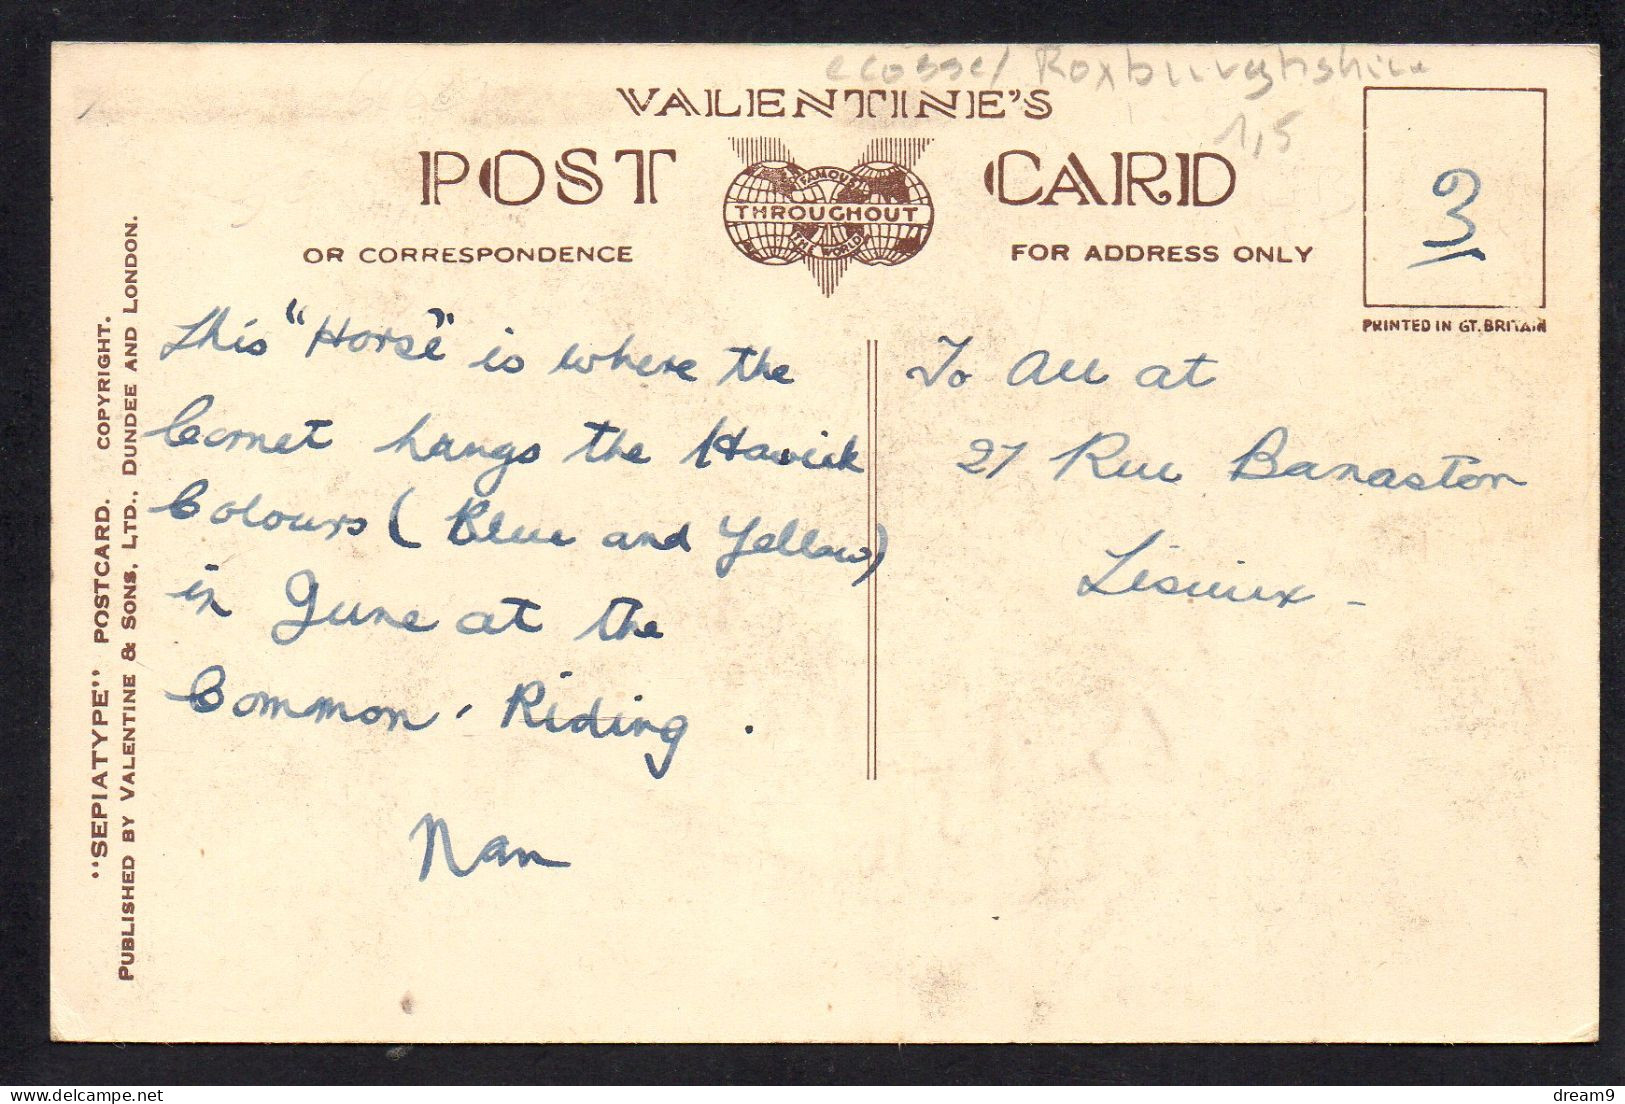 ecosse/ Roxburghshire
1,5
VALENTINE'S
POST CARD
FAMOUS
THROUGHOUT
THE WORLD
OR CORRESPONDENCE
FOR ADDRESS ONLY
3
PRINTED IN GT. BRITAIN
"SEPIATYPE" POSTCARD. COPYRIGHT.
PUBLISHED BY VALENTINE & SONS, LTD., DUNDEE AND LONDON.
This "Horse" is where the
Cornet hangs the Hawick
Colours (Blue and Yellow)
in June at the
Common-Riding.
Nan
To All at
27 Rue Banaston
Lisieux -
© dream9